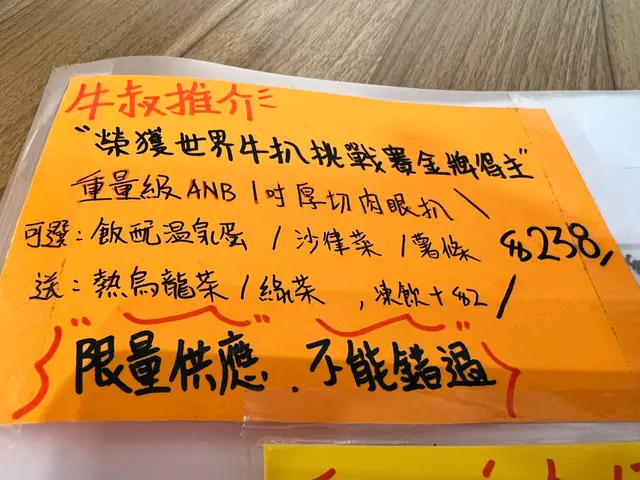 牛叔推介
"榮獲世界牛扒挑戰賽金牌得主"
重量級ANB 1吋厚切肉眼扒
可選：飯配溫泉蛋 / 沙律菜 / 薯條 $238/
送：熱烏龍茶 / 綠茶，凍飲+$2/
"限量供應"．"不能錯過"